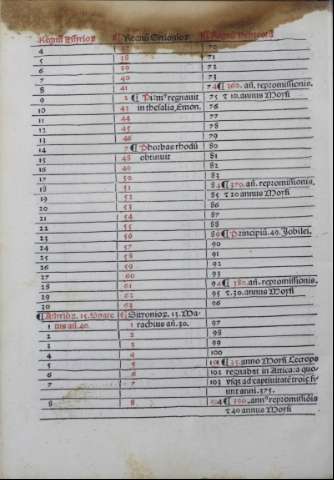 Regnū Assirioꝝ Regnū Sitionioꝝ
4 37 70
5 38 71
6 39 72
7 40 73
8 41 74 ¶ 360. añ. repromissionis.
9 42 ¶ Primꝰ regnauit 75 ⁊ 10. annus Moysi
10 43 in thesalia Emon. 76
11 44 77
12 45 78
13 46 79
14 47 ¶ Phorbas rhodū 80
15 48 obtinuit 81
16 49 82
17 50 83
18 51 84 ¶ 370. añ. repromissionis.
19 52 85 ⁊ 20 annus Moysi
20 53 86
21 54 87
22 55 88
23 56 89 ¶ Principiū. 49. Jobilei.
24 57 90
25 58 91
26 59 92
27 60 93
28 61 94 ¶ 380. añ. repromissionis.
29 62 95 ⁊. 30. annus Moysi
30 63 96
¶ Assirioꝝ. 15. ¶ Sitionioꝝ. 13. Ma-
1 tus añ. 40. 1 rachius añ. 30. 97
2 2 98
3 3 99
4 4 100
5 5 101 ¶ 35. anno Moysi Cecrops
6 6 102 regnabat in Attica: a quo
7 7 103 vsqꝫ ad captiuitatē troię fu-
unt anni. 375.
8 8 104 ¶ 390. annꝰ repromissiōis
⁊ 40 annus Moysi